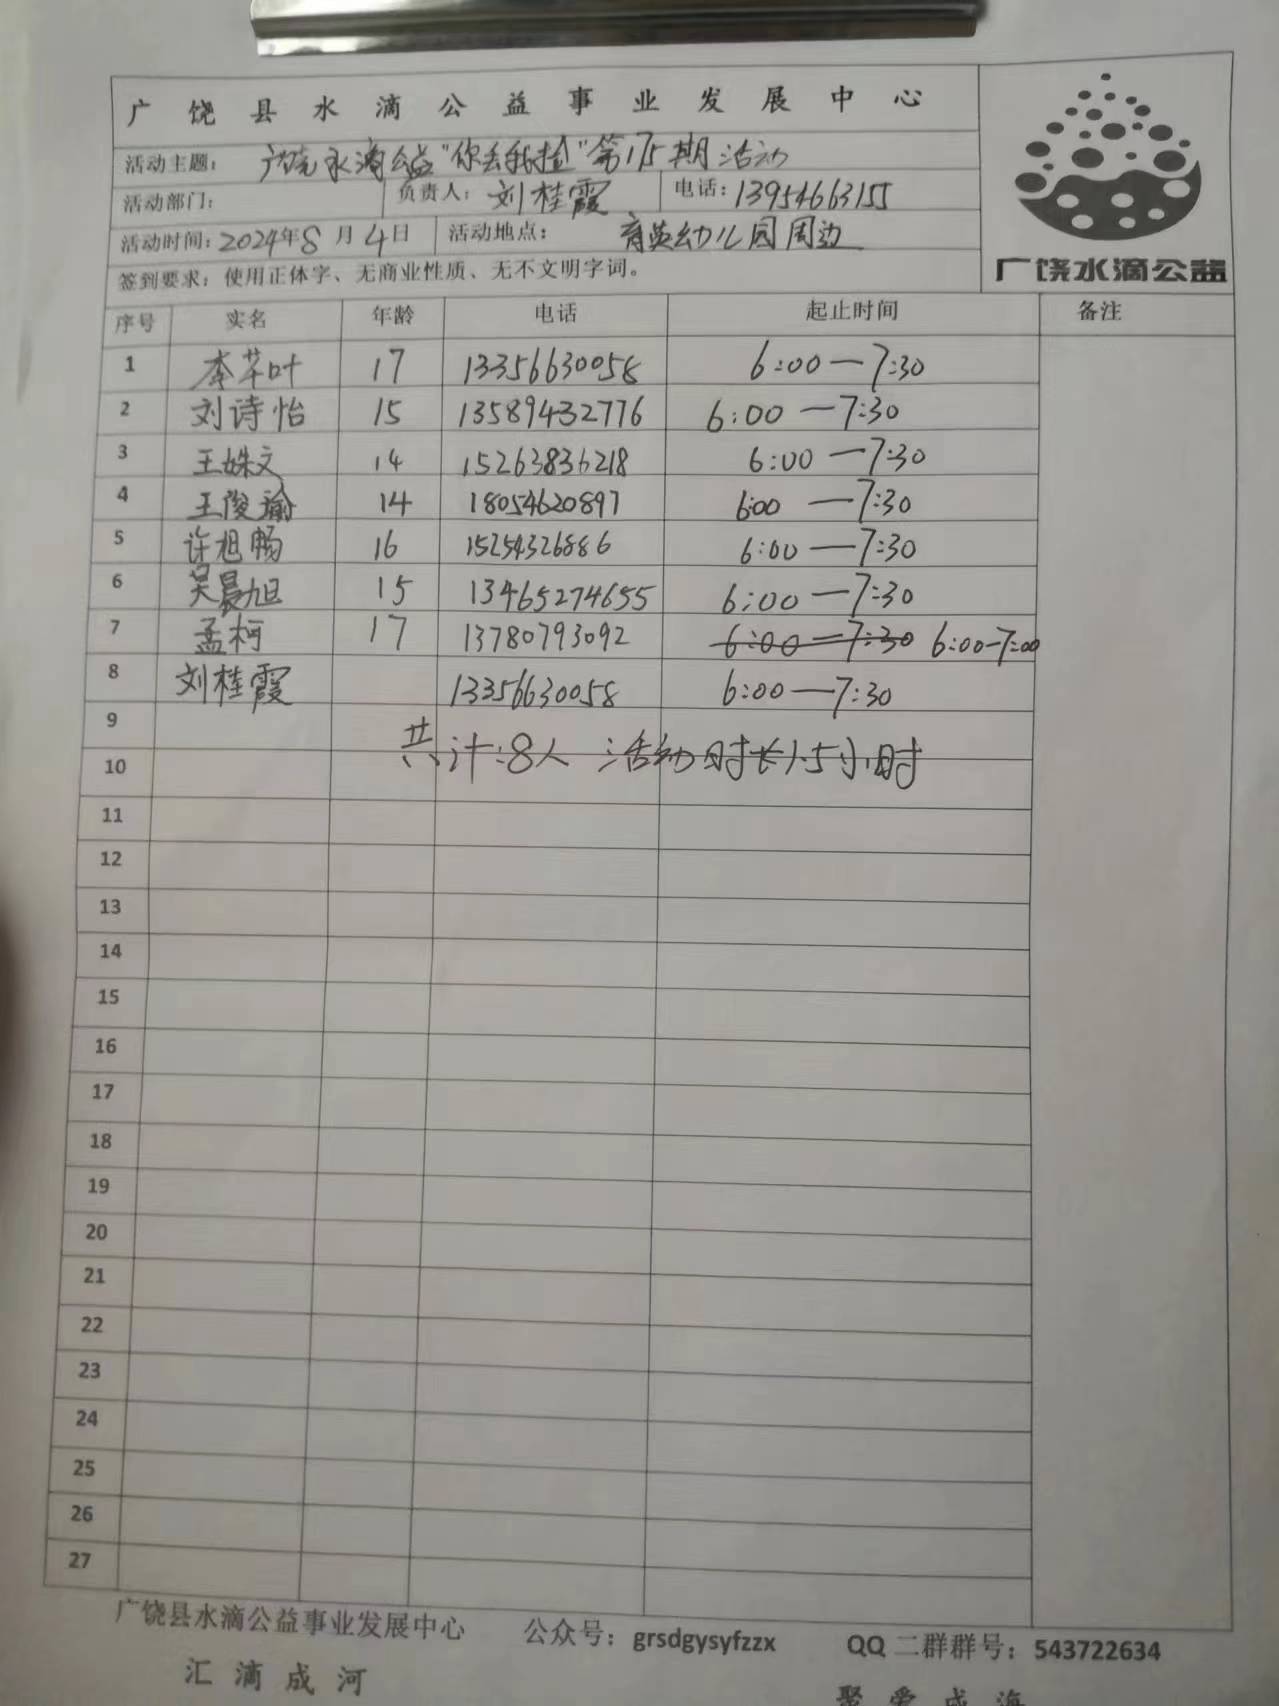 广饶县水滴公益事业发展中心
活动主题: 广饶水滴公益"你丢我捡"第175期活动
活动部门: 负责人: 刘桂霞 电话: 13954663155
活动时间: 2024年8月4日 活动地点: 育英幼儿园周边
签到要求: 使用正体字、无商业性质、无不文明字词。
广饶水滴公益
序号 实名 年龄 电话 起止时间 备注
1 李芊叶 17 13356630058 6:00—7:30
2 刘诗怡 15 13589432776 6:00—7:30
3 王姝文 14 15263836218 6:00—7:30
4 王俊瑜 14 18054620897 6:00—7:30
5 许旭畅 16 15254326886 6:00—7:30
6 吴晨旭 15 13465274655 6:00—7:30
7 孟柯 17 13780793092 6:00—7:30 6:00-7:00
8 刘桂霞 13356630058 6:00—7:30
9
共计:8人 活动时长1.5小时
10
11
12
13
14
15
16
17
18
19
20
21
22
23
24
25
26
27
广饶县水滴公益事业发展中心 公众号: grsdgysyfzzx QQ二群群号: 543722634
汇滴成河 聚爱成海